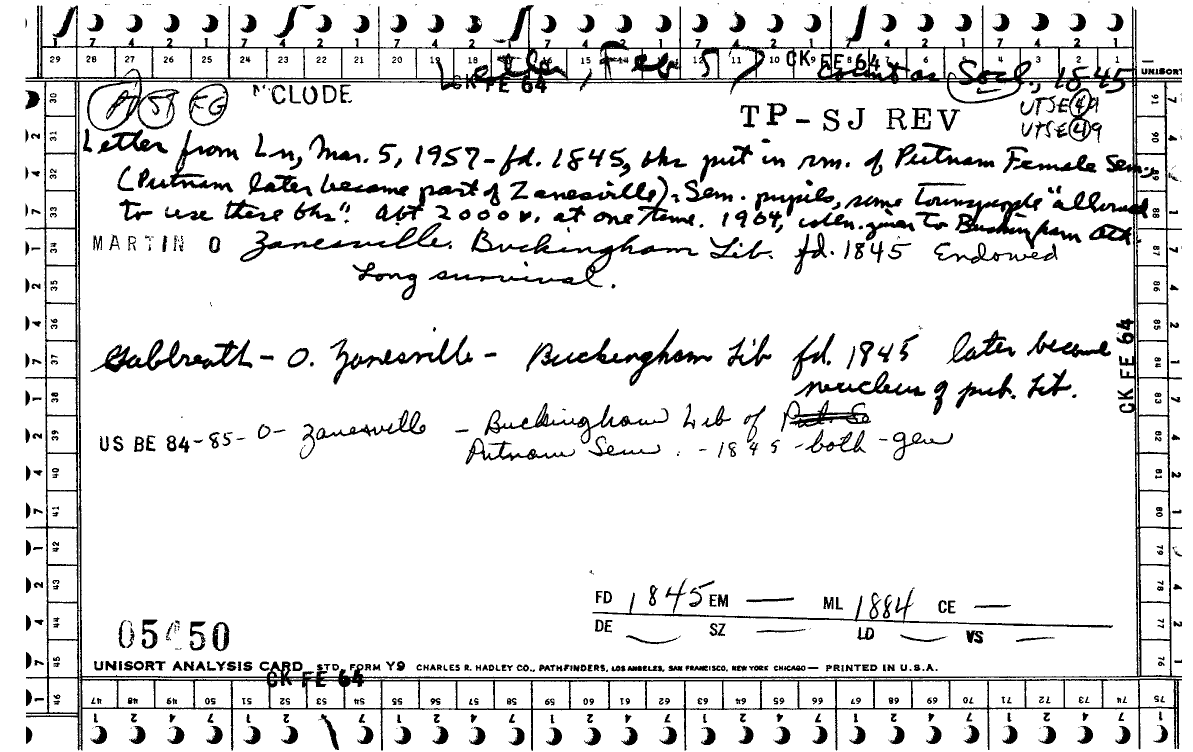 7 4 2 1 7 4 2 1 7 4 2 1 7 4 2 1 7 4 2 1 7 4 2 1 7 4 2 1
29 28 27 26 25 24 23 22 21 20 19 18 15 12 11 10 9 8 7 6 5 4 3 2 1
Letter, Feb 57 CK FE 64 Count as Socl, 1845
CK FE 64
UNISORT
PT SJ FG MCLODE
TP-SJ REV
UTSE 49
UTSE 49
Letter from Ln, Mar. 5, 1957 - fd. 1845, bks put in rm. of Putnam Female Sem.
(Putnam later became part of Zanesville). Sem. pupils, some townspeople "allowed
to use these bks". Abt 2000 v. at one time. 1904, when given to Buckingham Ath.
MARTIN O Zanesville. Buckingham Lib. fd. 1845 Endowed
Long survival.
Galbreath - O. Zanesville - Buckingham Lib fd. 1845 later became
nucleus of pub. Lib.
CK FE 64
US BE 84-85-O- Zanesville - Buckingham Lib of Put. Se
Putnam Sem. - 1845 - both - gen
FD 1845 EM — ML 1884 CE —
DE — SZ — LD — VS —
05 50
UNISORT ANALYSIS CARD STD. FORM Y9 CHARLES R. HADLEY CO., PATHFINDERS, LOS ANGELES, SAN FRANCISCO, NEW YORK CHICAGO — PRINTED IN U.S.A.
CK FE 64
47 48 49 50 51 52 53 54 55 56 57 58 59 60 61 62 63 64 65 66 67 68 69 70 71 72 73 74 75
1 2 4 7 1 2 4 7 1 2 4 7 1 2 4 7 1 2 4 7 1 2 4 7 1 2 4 7 1